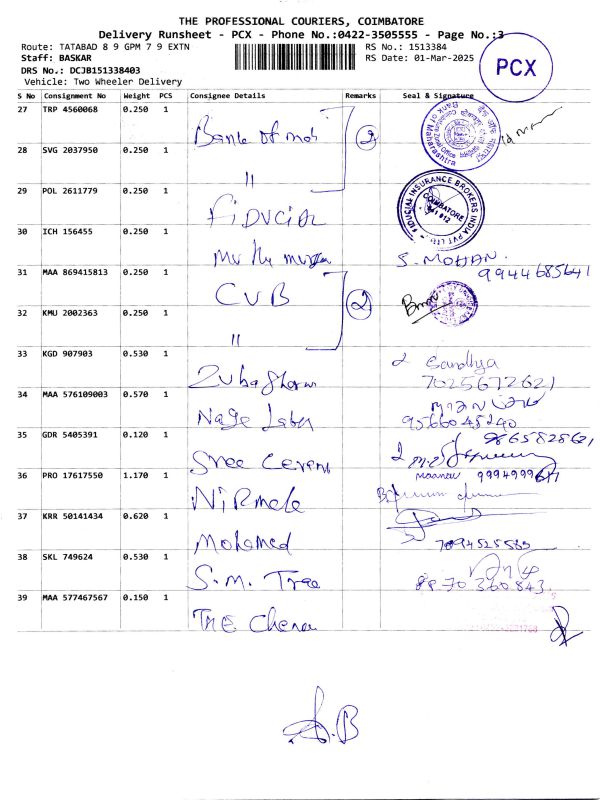 THE PROFESSIONAL COURIERS, COIMBATORE
Delivery Runsheet - PCX - Phone No.:0422-3505555 - Page No.:3
Route: TATABAD 8 9 GPM 7 9 EXTN
RS No.: 1513384
Staff: BASKAR
RS Date: 01-Mar-2025
DRS No.: DCJB151338403
Vehicle: Two Wheeler Delivery
PCX
S No Consignment No Weight PCS Consignee Details Remarks Seal & Signature
27 TRP 4560068 0.250 1
Bank of mah 2
28 SVG 2037950 0.250 1
"
29 POL 2611779 0.250 1
FIDUCIAL INSURANCE BROKERS INDIA PVT LTD
COIMBATORE
641 012
FIDUCIAL
30 ICH 156455 0.250 1
S. MOHAN
9944685641
31 MAA 869415813 0.250 1
CVB 2
32 KMU 2002363 0.250 1
"
33 KGD 907903 0.530 1
Sandhya
7025672621
34 MAA 576109003 0.570 1
9566045240
35 GDR 5405391 0.120 1
9865825621
Sree
36 PRO 17617550 1.170 1
NiRmala
37 KRR 50141434 0.620 1
Mohamed
7094525585
38 SKL 749624 0.530 1
S.M. Trae
8870360843
39 MAA 577467567 0.150 1
THE
S.B